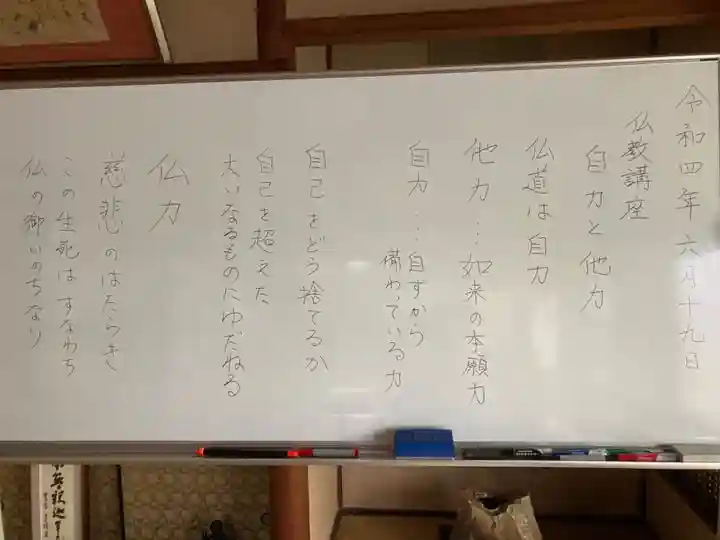 令和四年六月十九日
仏教講座
自力と他力
仏道は自力
他力…如来の本願力
自力…自ずから
備わっている力
自己をどう捨てるか
自己を超えた
大いなるものにゆだねる
仏力
慈悲のはたらき
この生死はすなわち
仏の御いのちなり